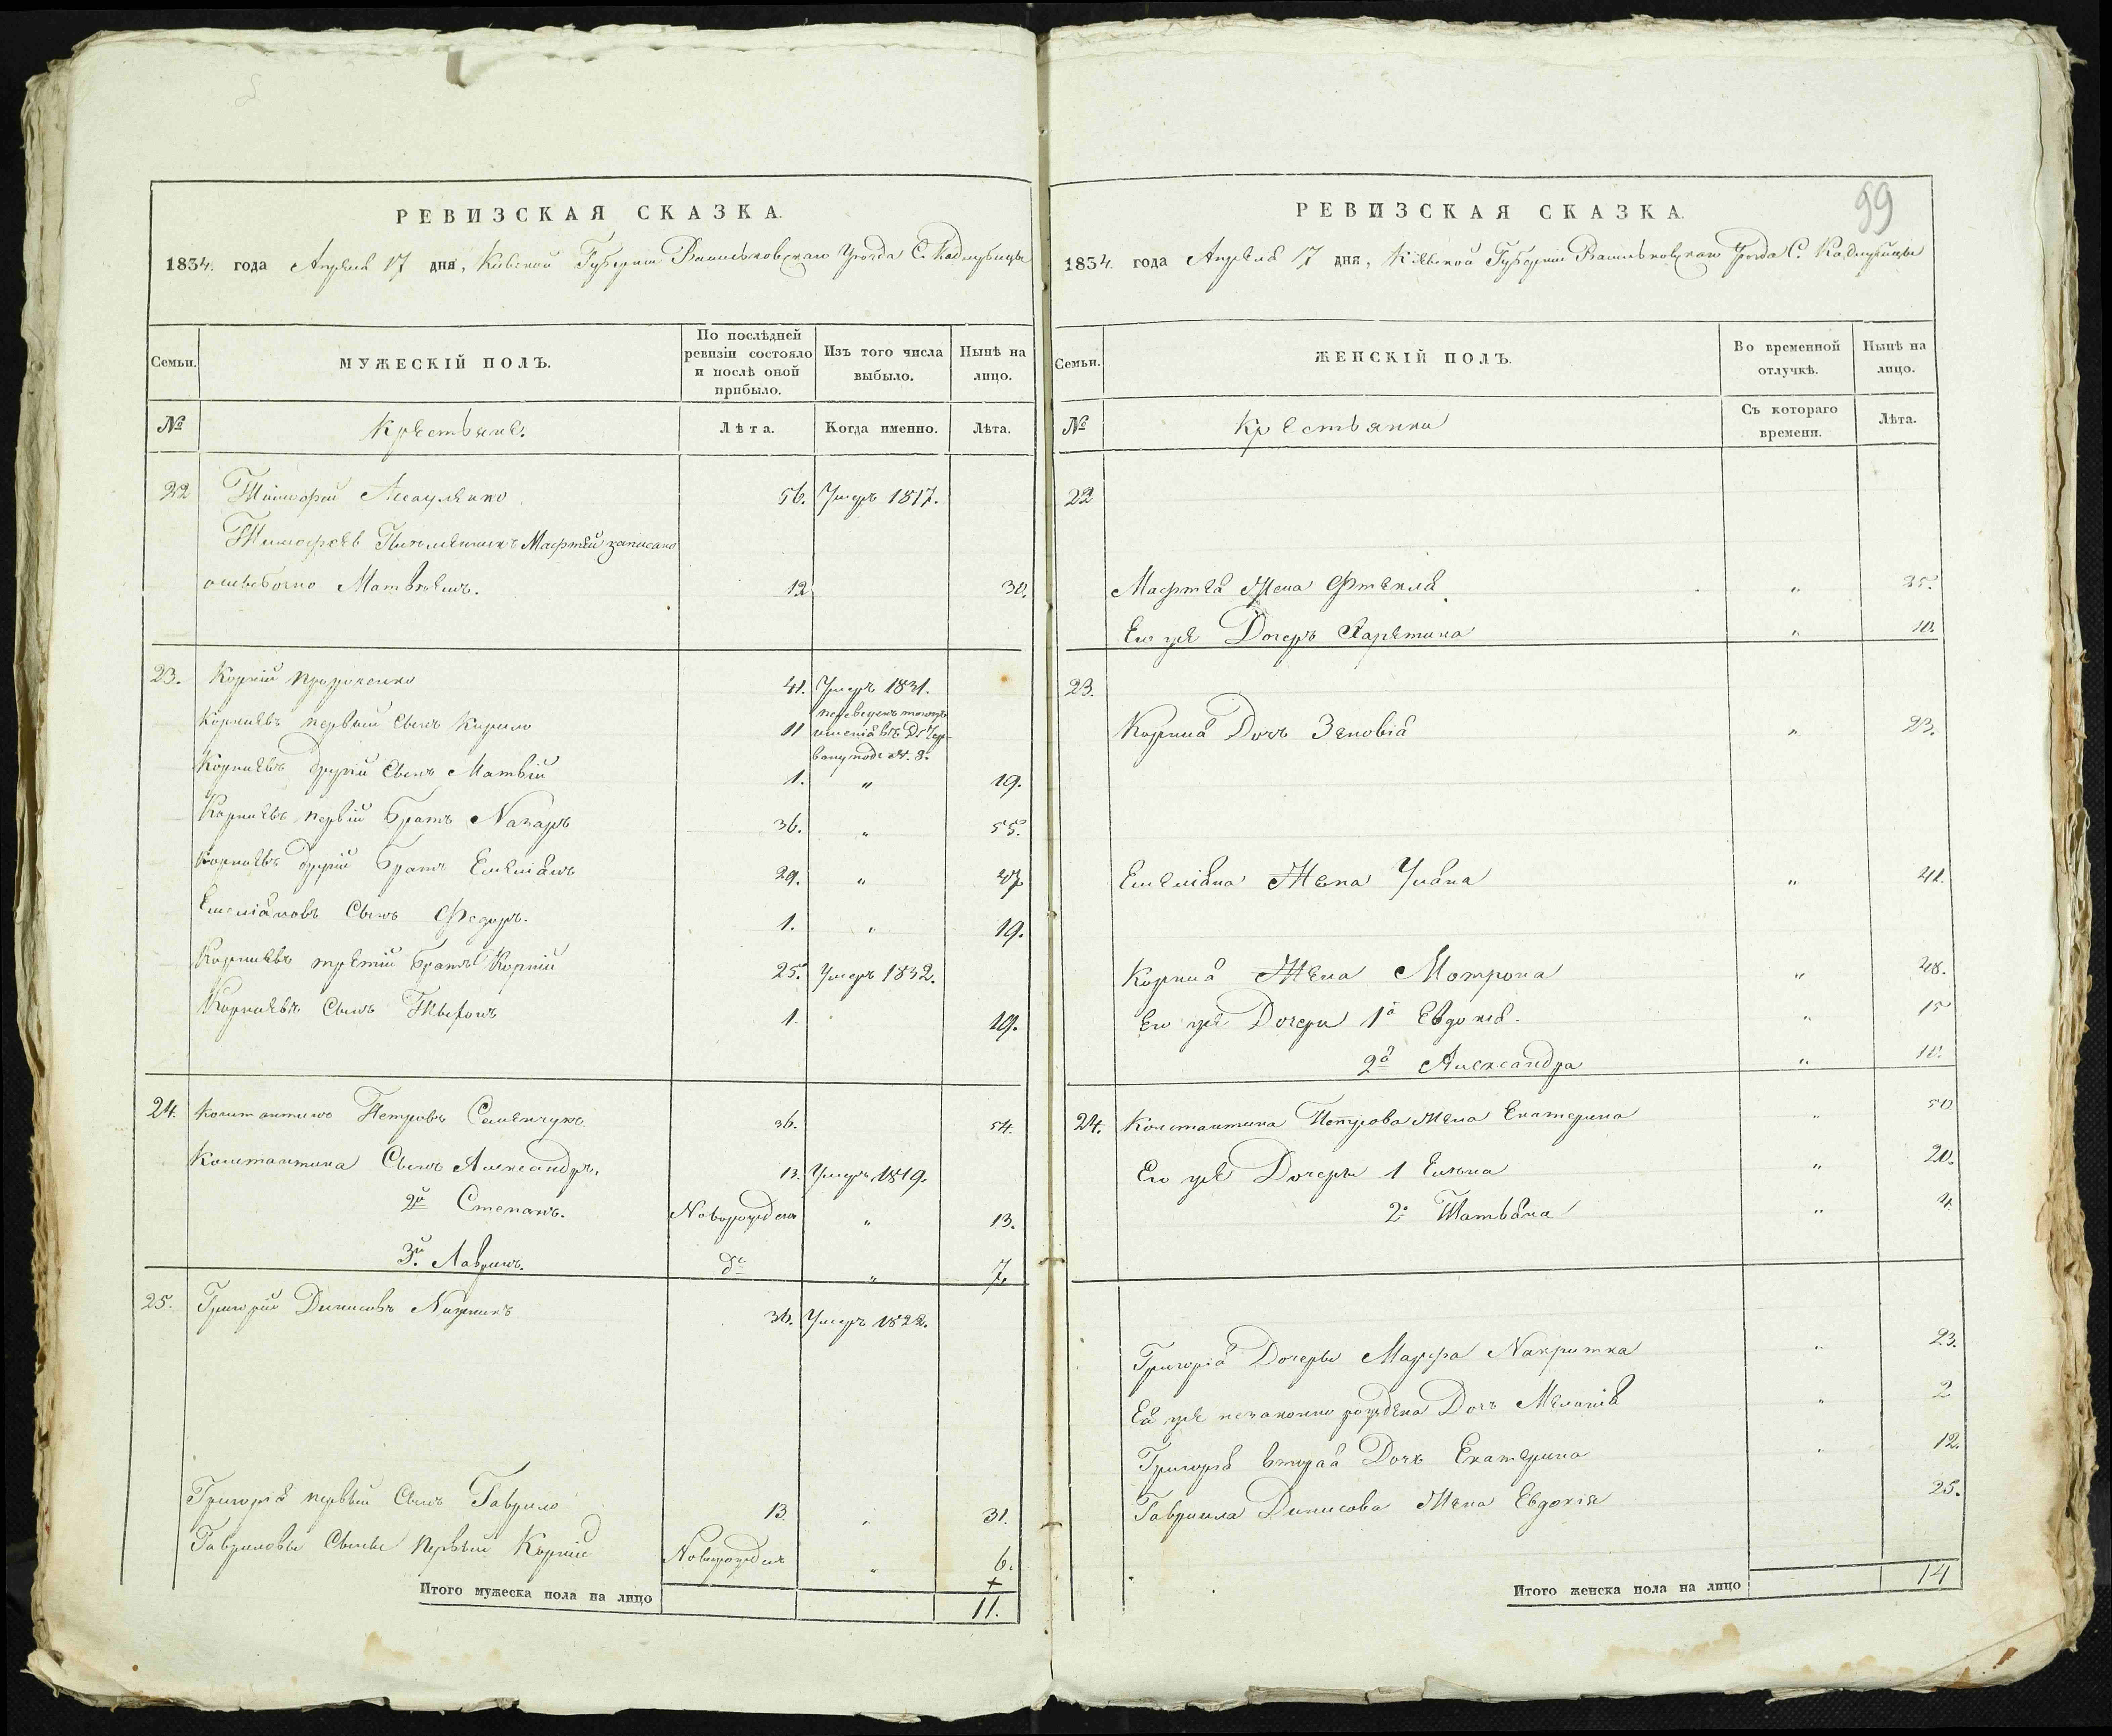 РЕВИЗСКАЯ СКАЗКА.
1834. года Апреля 17 дня, Кіевской Губерніи Васильковскаго Уѣзда С. Кадлубицы
Семьи.
МУЖЕСКІЙ ПОЛЪ.
По послѣдней
ревизіи состояло
и послѣ оной
прибыло.
Изъ того числа
выбыло.
Нынѣ на
лицо.
№
Крестьяне.
Лѣта.
Когда именно.
Лѣта.
22 Тимофей 56. Умеръ 1817.
Тимофеевъ Племянникъ Мафтей записано
ошибочно Матвѣемъ. 12 30.
23. Корній 41. Умеръ 1831.
Корніевъ первый Сынъ Кирило 11 переведенъ
имѣнія въ
подъ №. 8.
Корніевъ другій Сынъ Матвій 1. " 19.
Корніевъ первій Братъ Назаръ 36. " 55.
Корніевъ другій Братъ Емеліанъ 29. " 47
Емеліановъ Сынъ Федоръ. 1. " 19.
Корніевъ третій Братъ Корній 25. Умеръ 1832.
Корніевъ Сынъ 1. 19.
24. Константинъ Петровъ Семенчукъ. 36. 54.
Константина Сынъ Александръ. 13. Умеръ 1819.
2й Степанъ. Новорожден " 13.
3й. Лавринъ. до " 7.
25. Григорій Динисовъ 36. Умеръ 1822.
Григорія первый Сынъ Гаврило 13. " 31.
Гавриловы Сыны первый Корній Новорожден " 6.
+
Итого мужеска пола на лицо 11.
99
РЕВИЗСКАЯ СКАЗКА.
1834. года Апреля 17 дня, Кіевской Губерніи Васильковскаго Уѣзда С. Кадлубицы
Семьи.
ЖЕНСКІЙ ПОЛЪ.
Во временной
отлучкѣ.
Нынѣ на
лицо.
№
Крестьянки
Съ котораго
времени.
Лѣта.
22
Мафтея Жена Фтекла. " 25.
Его же Дочеръ Харетина " 10.
23.
Корнія Дочъ Зеновія " 23.
Емеліана Жена Уліана " 41.
Корнія Жена Мотрона " 48.
Его же Дочери 1я Евдокія. " 15
2я Александра " 10.
24. Константина Петрова Жена Екатерина " 50
Его же Дочеры 1 Елена " 20.
2я Татьяна " 4.
Григорія Дочеры Марфа Накритка " 23.
Ея же незаконно рождена Дочъ Меланія " 2
Григорія вторая Дочъ Екатерина " 12.
Гавриила Динисова Жена Евдокія 25.
Итого женска пола на лицо 14